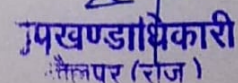 उपखण्डाधिकारी
(राज)